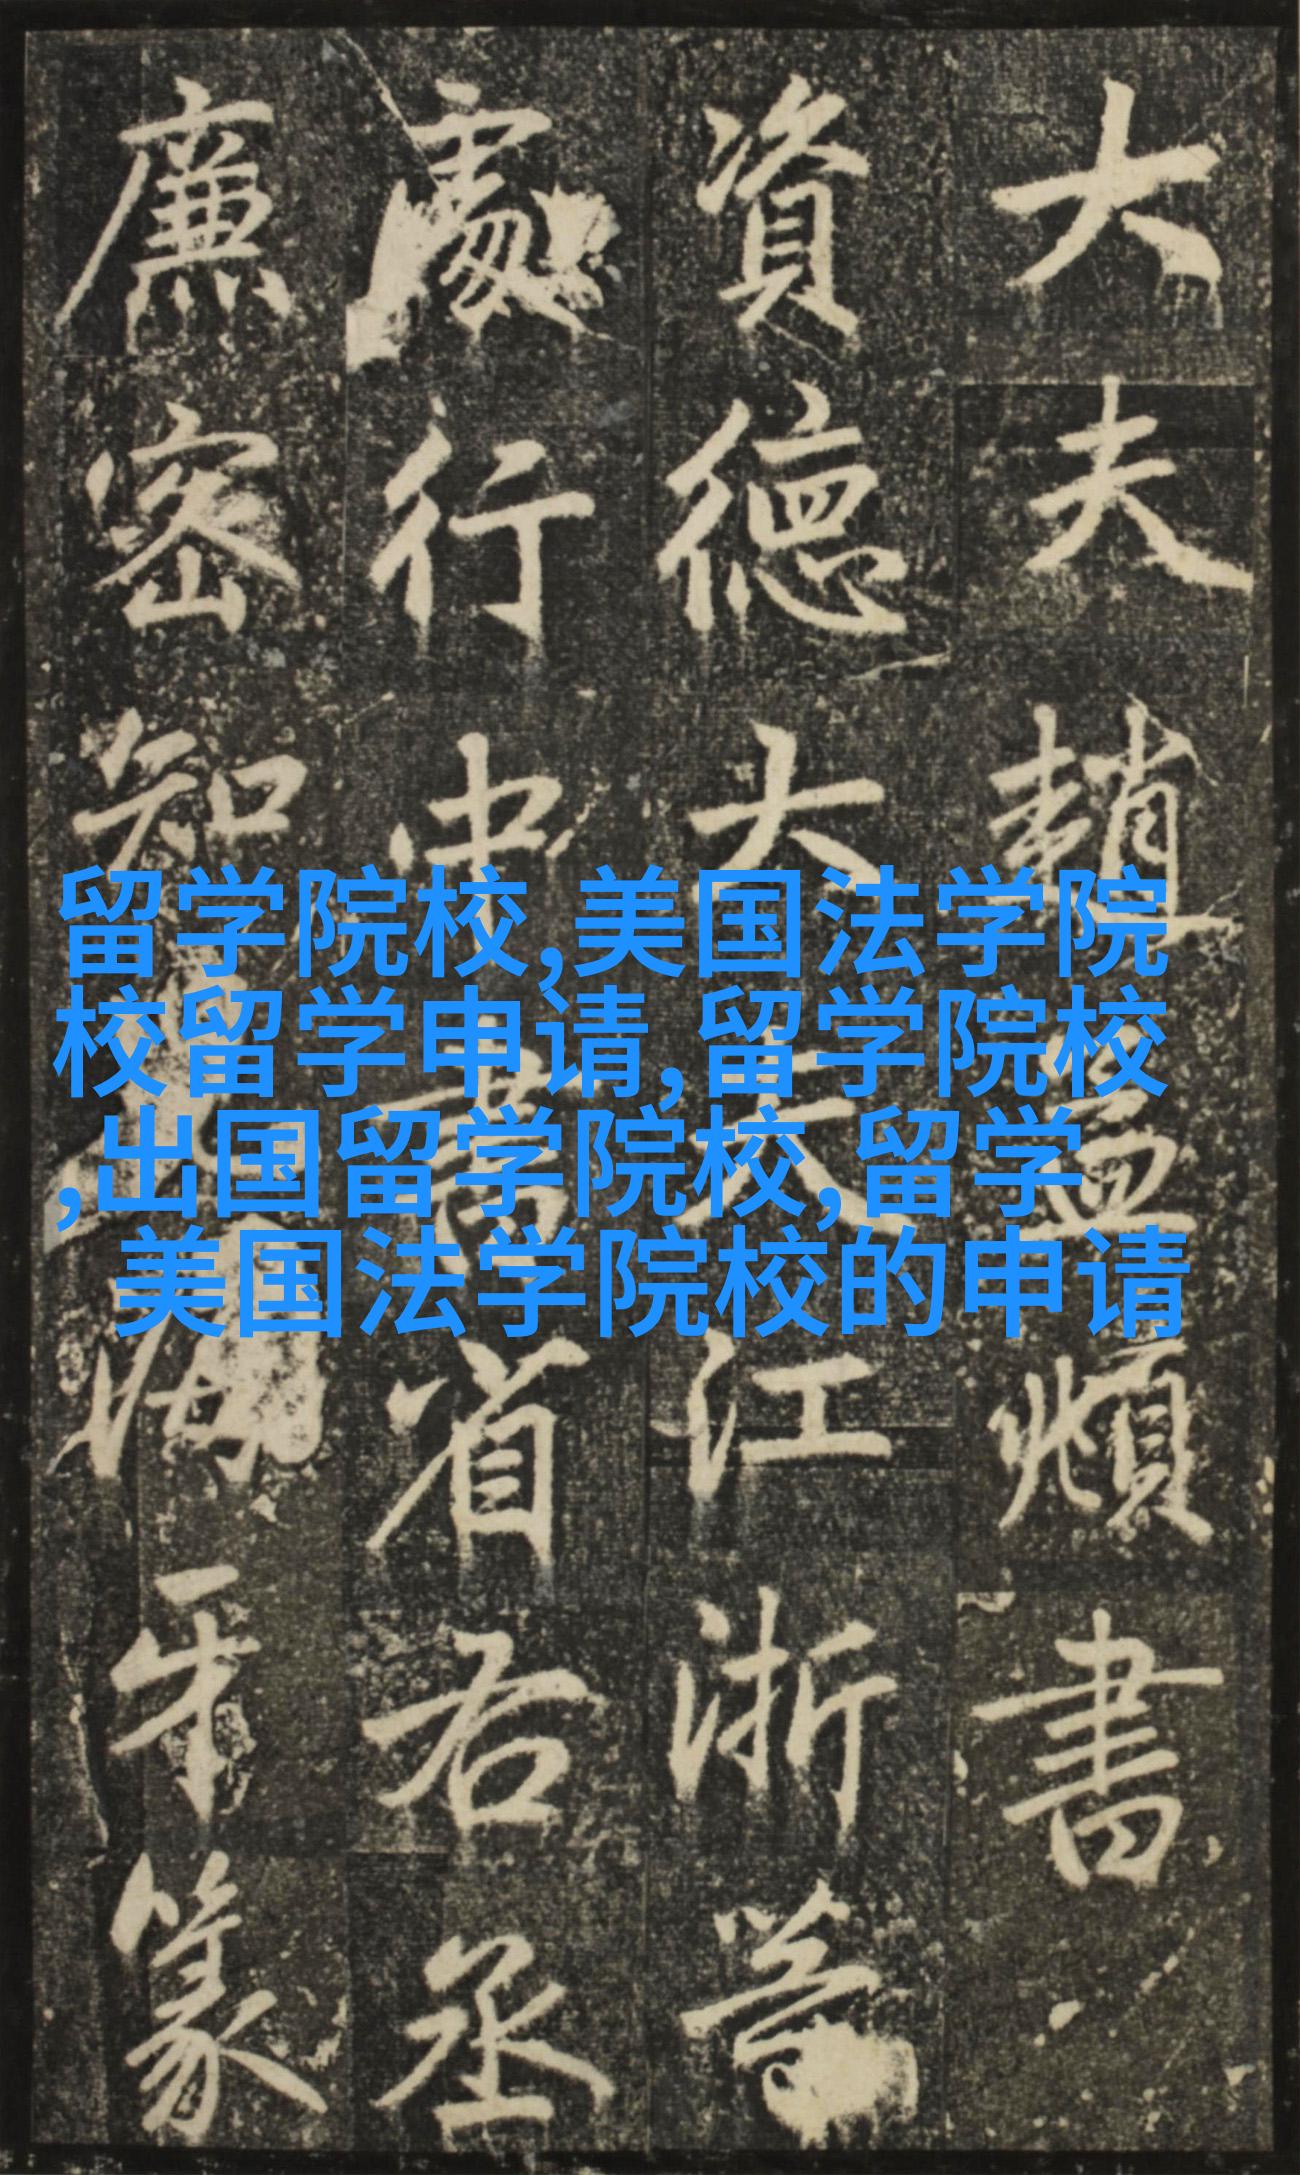 大夫趙孟頫書
資德大夫江浙等
處行中書省右丞
廉密知兒海牙篆
留学院校,美国法学院
校留学申请,留学院校
,出国留学院校,留学
美国法学院校的申请